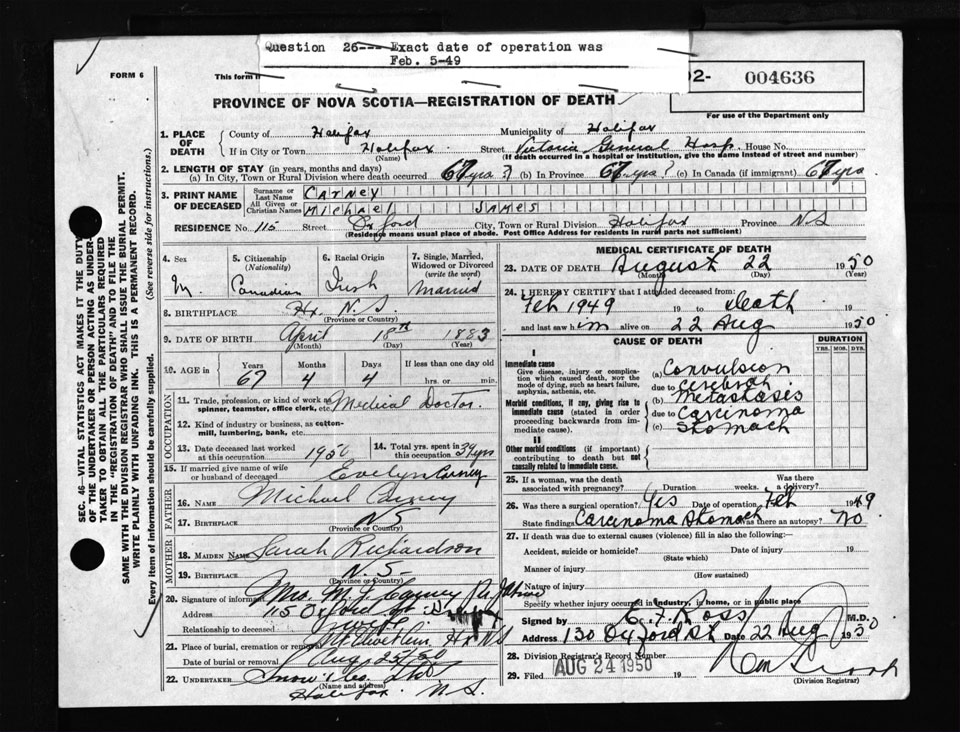 Question 26--- Exact date of operation was
Feb. 5-49
FORM 6
This form i
02- 004636
For use of the Department only
PROVINCE OF NOVA SCOTIA—REGISTRATION OF DEATH
1. PLACE OF DEATH
County of Halifax Municipality of Halifax
If in City or Town Halifax Street Victoria General Hosp. House No.
(Name) (If death occurred in a hospital or institution, give the name instead of street and number)
2. LENGTH OF STAY (in years, months and days)
(a) In City, Town or Rural Division where death occurred 67 yrs ? (b) In Province 67 yrs ? (c) In Canada (if immigrant) 67 yrs
3. PRINT NAME OF DECEASED
Surname or Last Name CARNEY
All Given or Christian Names MICHAEL JAMES
RESIDENCE No. 115 Street Oxford City, Town or Rural Division Halifax Province N.S
(Residence means usual place of abode. Post Office Address for residents in rural parts not sufficient)
4. Sex M.
5. Citizenship (Nationality) Canadian
6. Racial Origin Irish
7. Single, Married, Widowed or Divorced (write the word) Married
8. BIRTHPLACE Hx. N.S.
(Province or Country)
9. DATE OF BIRTH April 18th 1883
(Month) (Day) (Year)
10. AGE IN Years 67 Months 4 Days 4 If less than one day old
hrs. or min.
OCCUPATION
11. Trade, profession, or kind of work as spinner, teamster, office clerk, etc. Medical Doctor.
12. Kind of industry or business, as cotton-mill, lumbering, bank, etc.
13. Date deceased last worked at this occupation 1950
14. Total yrs. spent in this occupation 34 yrs
15. If married give name of wife or husband of deceased Evelyn Carney
FATHER
16. Name Michael Carney
17. Birthplace N.S
(Province or Country)
MOTHER
18. Maiden Name Sarah Richardson
19. Birthplace N.S-
(Province or Country)
20. Signature of informant Mrs. M. J. Carney
Address 115 Oxford St.
Relationship to deceased wife
21. Place of burial, cremation or removal Mt Olivet Cem, Hx NS
Date of burial or removal Aug 25/50
22. UNDERTAKER Snow & Co. Ltd
(Name and address) Halifax N.S.
MEDICAL CERTIFICATE OF DEATH
23. DATE OF DEATH August 22 1950
(Month) (Day) (Year)
24. I HEREBY CERTIFY that I attended deceased from:
Feb 1949 19 to death 19
and last saw him alive on 22 Aug 1950
CAUSE OF DEATH
DURATION
YRS. MOS. DYS.
I
Immediate cause
Give disease, injury or complication which caused death, not the mode of dying, such as heart failure, asphyxia, asthenia, etc.
(a) Convulsion
due to cerebral
Morbid conditions, if any, giving rise to immediate cause (stated in order proceeding backwards from immediate cause).
(b) Metastasis
due to Carcinoma
(c) Stomach
II
Other morbid conditions (if important) contributing to death but not causally related to immediate cause.
25. If a woman, was the death associated with pregnancy? Duration weeks. Was there a delivery?
26. Was there a surgical operation? Yes Date of operation Feb 1949
State findings Carcinoma Stomach Was there an autopsy? No
27. If death was due to external causes (violence) fill in also the following:—
Accident, suicide or homicide? Date of injury 19
(State which)
Manner of injury
(How sustained)
Nature of injury
Specify whether injury occurred in industry, in home, or in public place
Signed by Ross M.D.
Address 130 Oxford St Date 22 Aug 1950
28. Division Registrar's Record Number
29. Filed AUG 24 1950 19
(Division Registrar)
SEC. 46—VITAL STATISTICS ACT MAKES IT THE DUTY
OF THE UNDERTAKER OR PERSON ACTING AS UNDER-
TAKER TO OBTAIN ALL THE PARTICULARS REQUIRED
IN THE "REGISTRATION OF DEATH" AND TO FILE THE
SAME WITH THE DIVISION REGISTRAR WHO SHALL ISSUE THE BURIAL PERMIT.
WRITE PLAINLY WITH UNFADING INK. THIS IS A PERMANENT RECORD.
Every item of information should be carefully supplied. (See reverse side for instructions.)